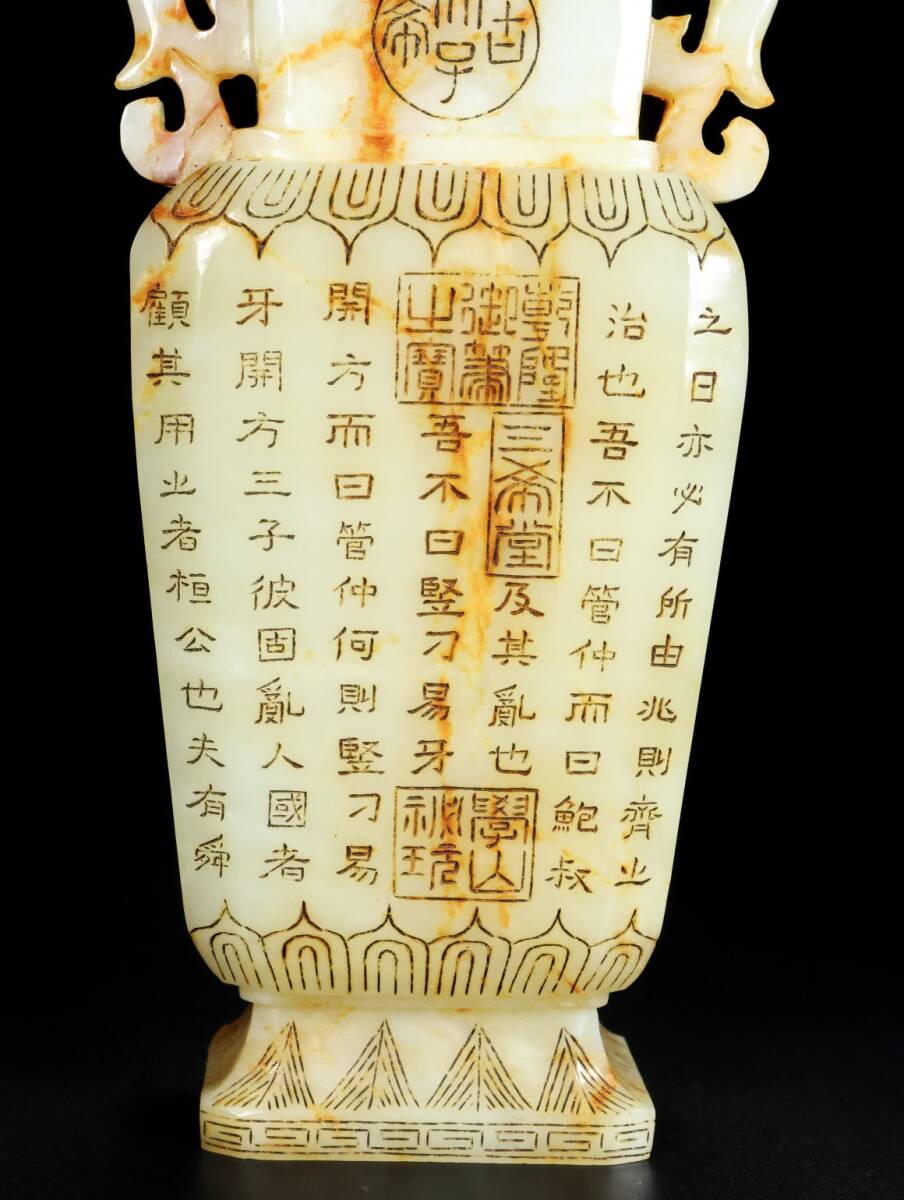 古希天子
之日亦必有所由兆則齊之
治也吾不曰管仲而曰鮑叔
乾隆御筆之寶
三希堂
及其亂也
吾不曰竪刁易牙
學山祕玩
開方而曰管仲何則竪刁易
牙開方三子彼固亂人國者
顧其用之者桓公也夫有舜